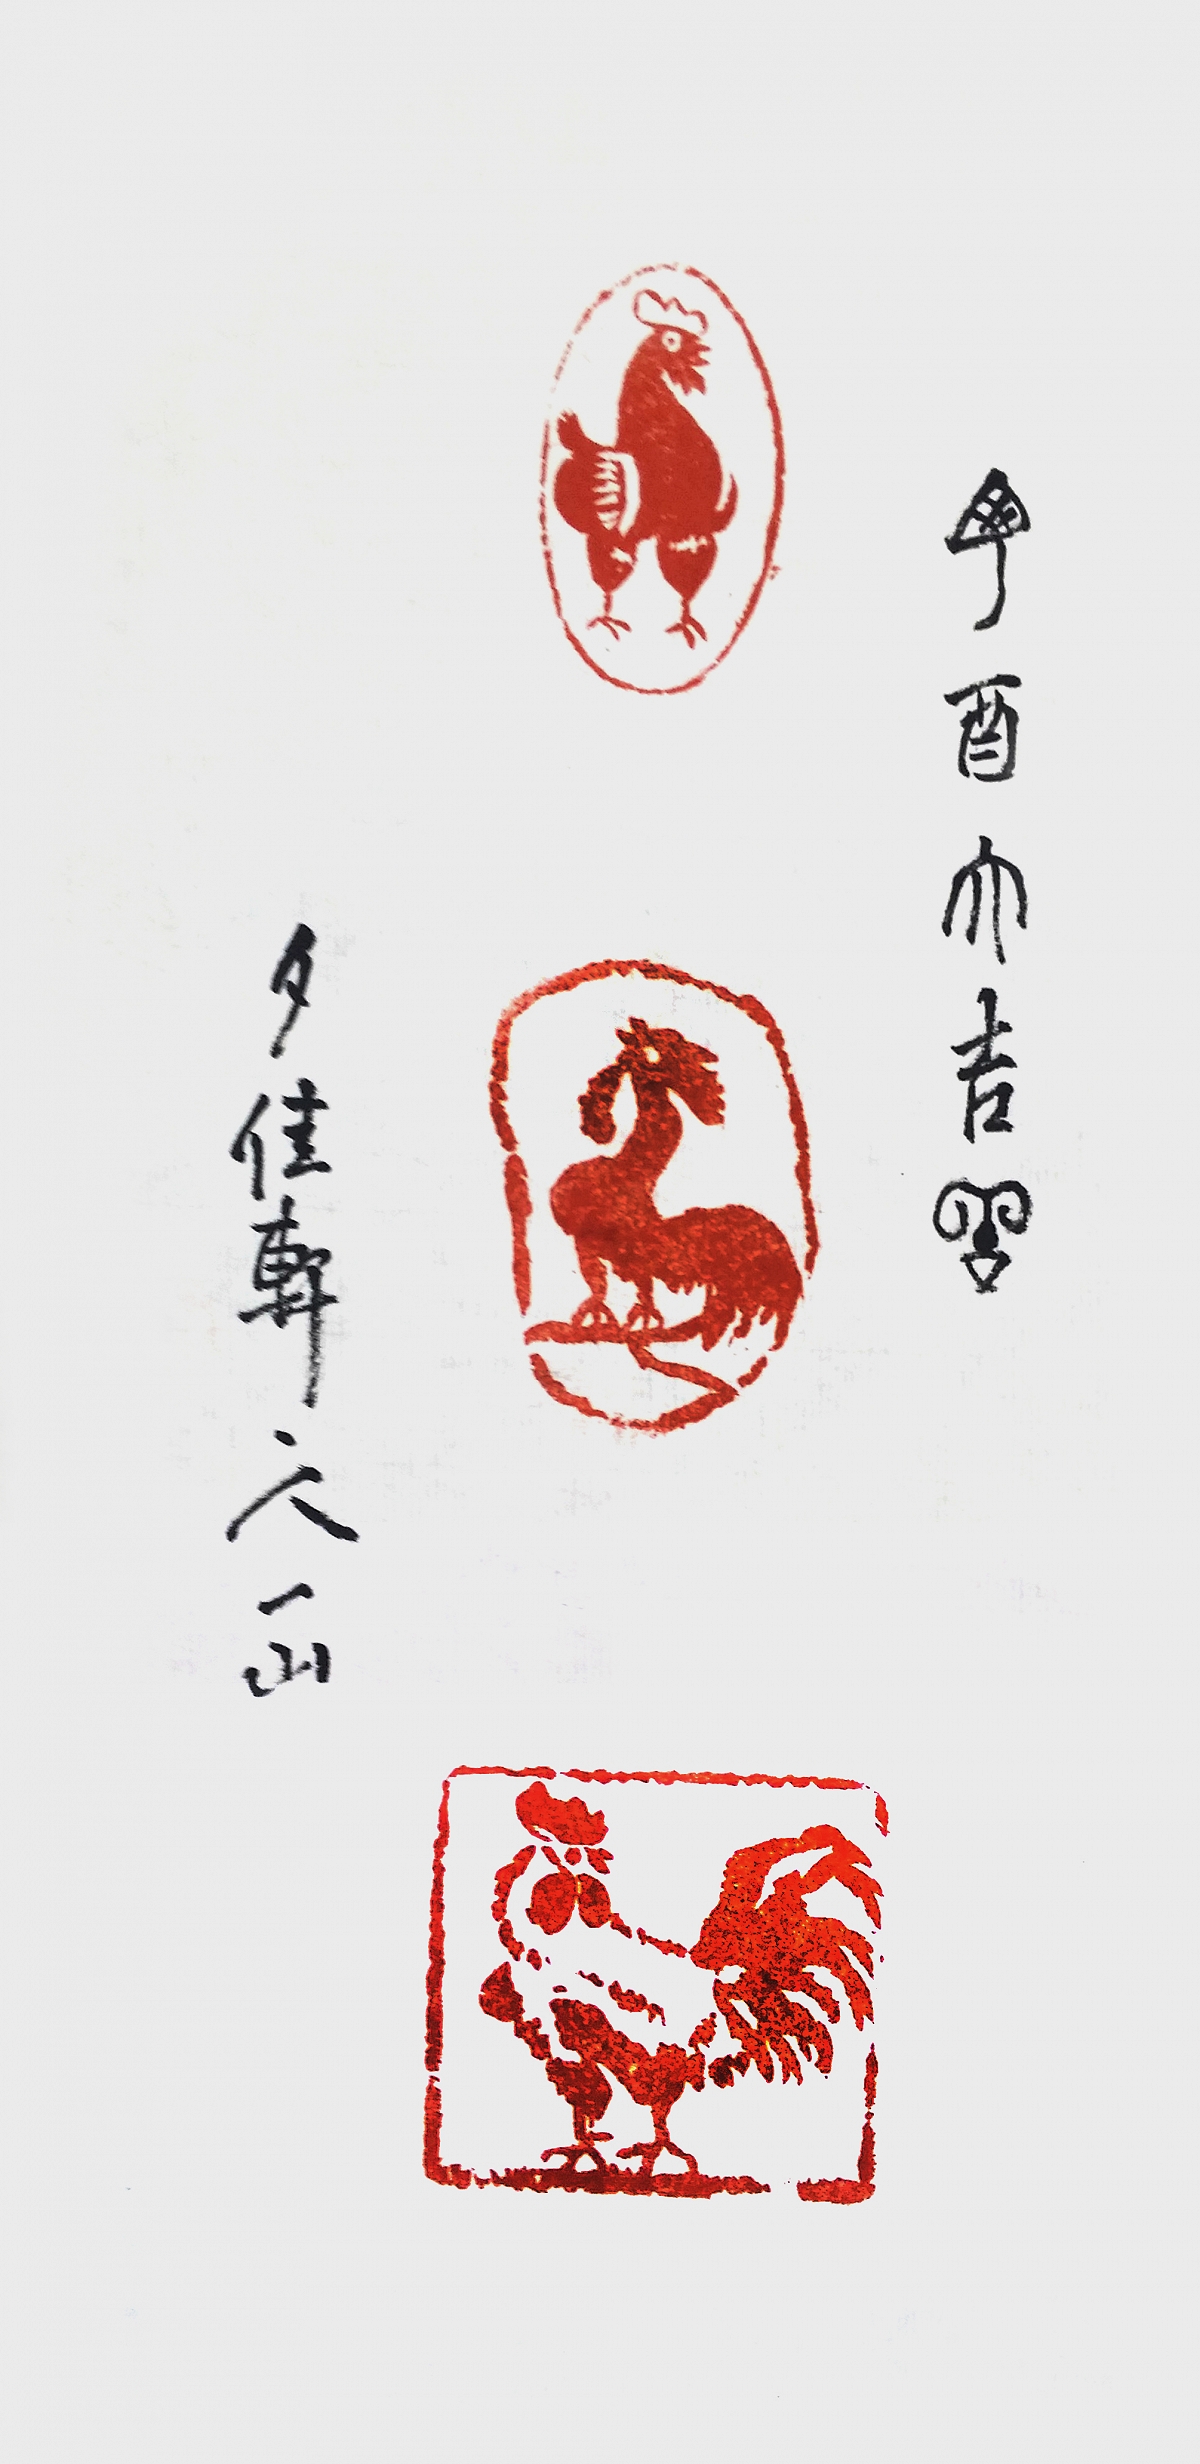 酉大吉
夕佳軒之人一山